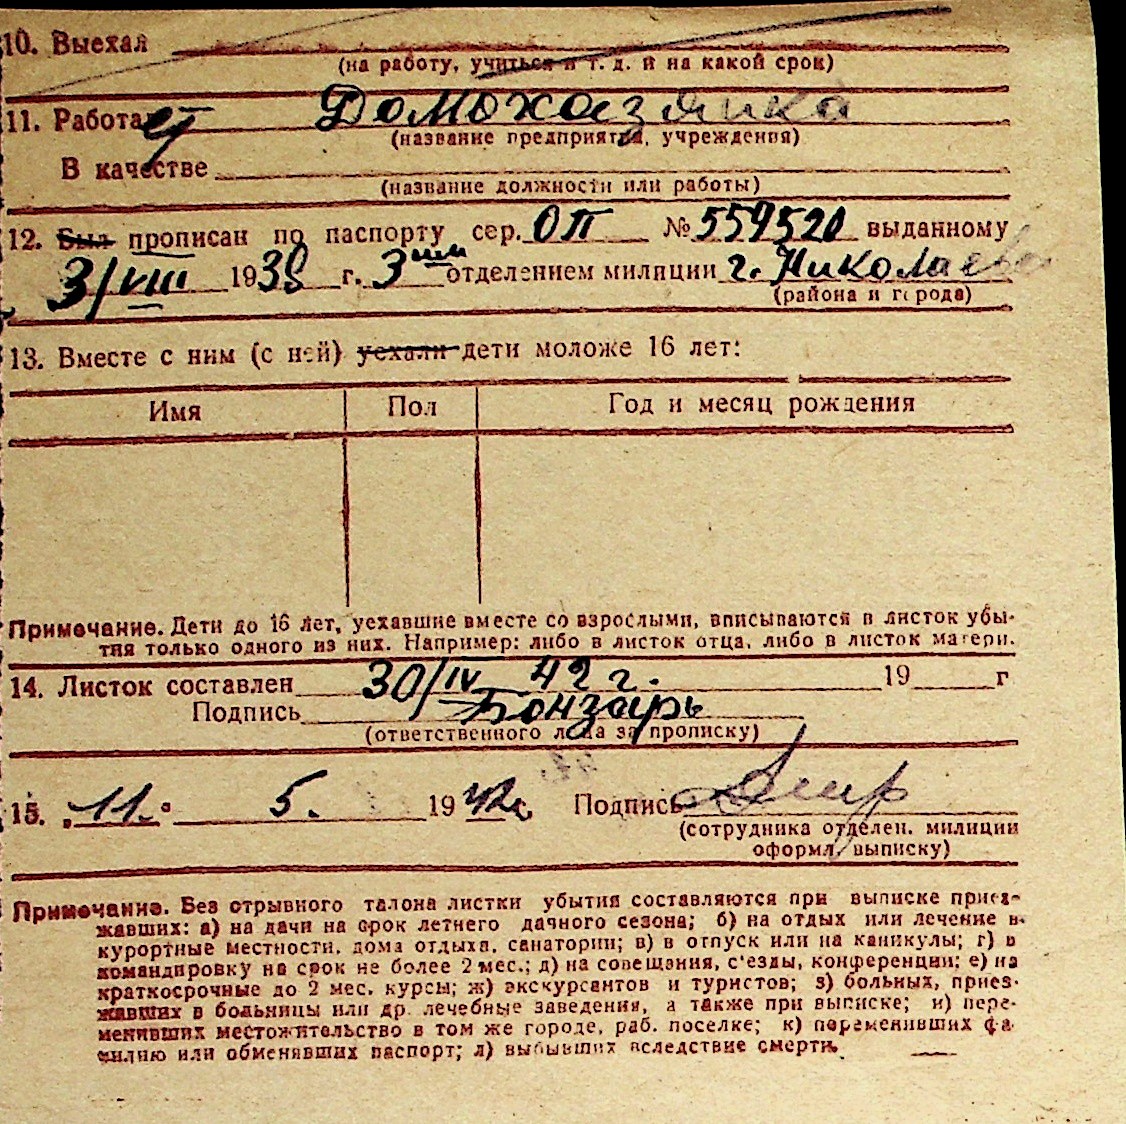 10. Выехал
(на работу, учиться и т. д. и на какой срок)
11. Работает Домохазяика
(название предприятия, учреждения)
В качестве
(название должности или работы)
12. Был прописан по паспорту сер. ОП № 559520 выданному
3/VIII 1938 г. 3им отделением милиции г. Николаева
(района и города)
13. Вместе с ним (с ней) уехали дети моложе 16 лет:
Имя Пол Год и месяц рождения
Примечание. Дети до 16 лет, уехавшие вместе со взрослыми, вписываются в листок убы-
тия только одного из них. Например: либо в листок отца, либо в листок матери.
14. Листок составлен 30/IV 42 г. 19 г
Подпись Бонзарь
(ответственного лица за прописку)
15. „11." 5. 1942 г. Подпись
(сотрудника отделен. милиции
оформл. выписку)
Примечание. Без отрывного талона листки убытия составляются при выписке приез-
жавших: а) на дачи на срок летнего дачного сезона; б) на отдых или лечение в
курортные местности, дома отдыха, санатории; в) в отпуск или на каникулы; г) в
командировку на срок не более 2 мес.; д) на совещания, с'езды, конференции; е) на
краткосрочные до 2 мес. курсы; ж) экскурсантов и туристов; з) больных, приез-
жавших в больницы или др. лечебные заведения, а также при выписке; и) пере-
менивших местожительство в том же городе, раб. поселке; к) переменивших фа-
милию или обменявших паспорт; л) выбывших вследствие смерти.